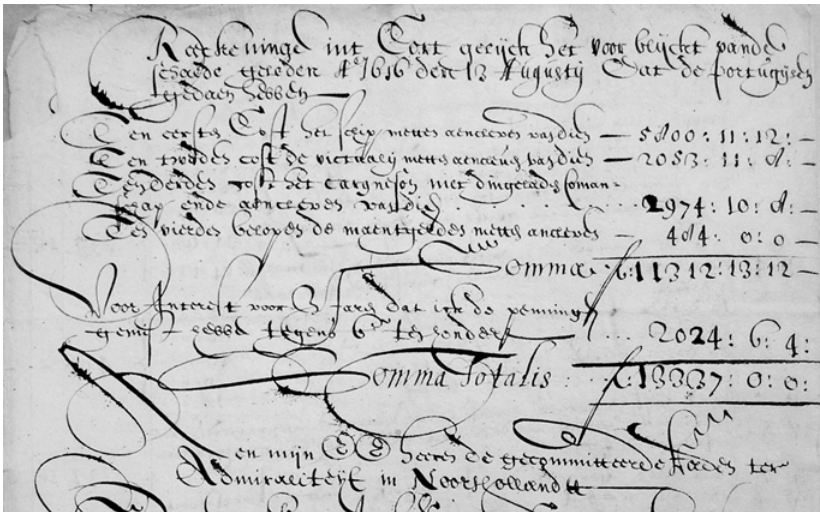 Reeckeninge int Cort gelijck het voor blijckt vande
schaede geleden Aº 1616 den 13 Augustij Dat de portugijsen
gedaen hebben
Ten eersten Cost het schip mettet aencleven van dien — 5800 : 11 : 12 : —
Ten tweeden cost de victualij mettet aencleven van dien — 2053 : 11 : 8 : —
Ten derden cost het cargasoen met d'ingelade coman-
schap ende aencleven van dien 2974 : 10 : 8 : —
Ten vierden belopen de maentgelden mettet ancleven — 484 : 0 : 0 —
Somma 11312 : 13 : 12 —
Voor Interest voor 3 Jaren dat ick de penningh
gemist hebbe tegens 6 ten hondert 2024 : 6 : 4 :
Somma Totalis 13337 : 0 : 0 :
Aen mijn E E heeren de gecommitteerde Raeden ter
Admiraliteijt in Noorthollandt